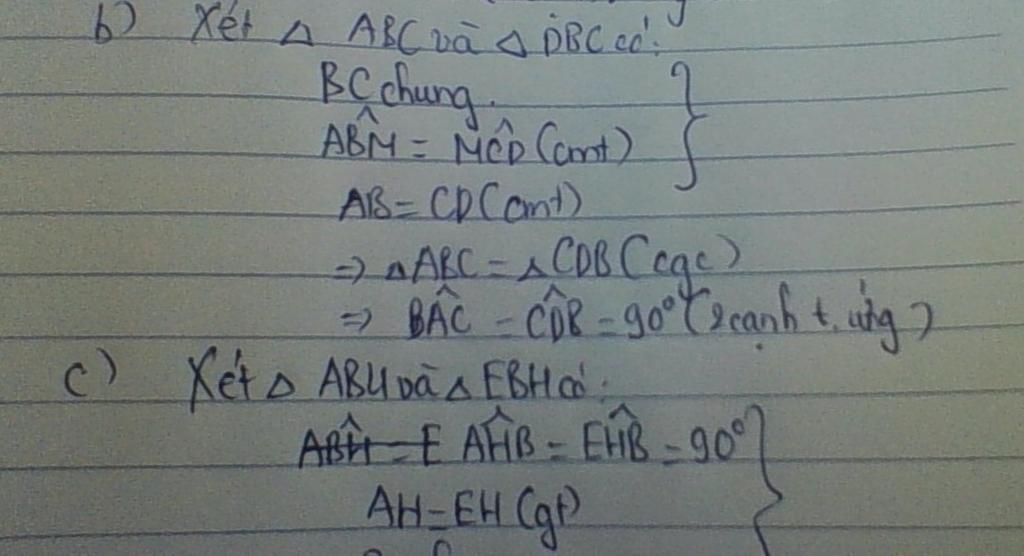 b) Xét △ ABC và △ DBC có:
BC chung.
AB̂M = MĈD (cmt)
AB = CD (cmt)
=> △ABC = △CDB (cgc)
=> BÂC = CD̂B = 90° (2 cạnh t. ứng)
c) Xét △ ABH và △ EBH có:
ABĤ = E AĤB = EĤB = 90°
AH = EH (gt)